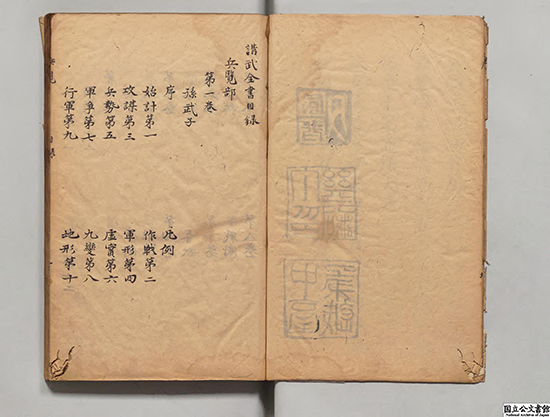 講武全書目録
兵覽部
第一卷
孫武子
序　凡例
始計第一　作戰第二
攻謀第三　軍形第四
兵勢第五　虚實第六
軍爭第七　九變第八
行軍第九　地形第十
国立公文書館
National Archives of Japan